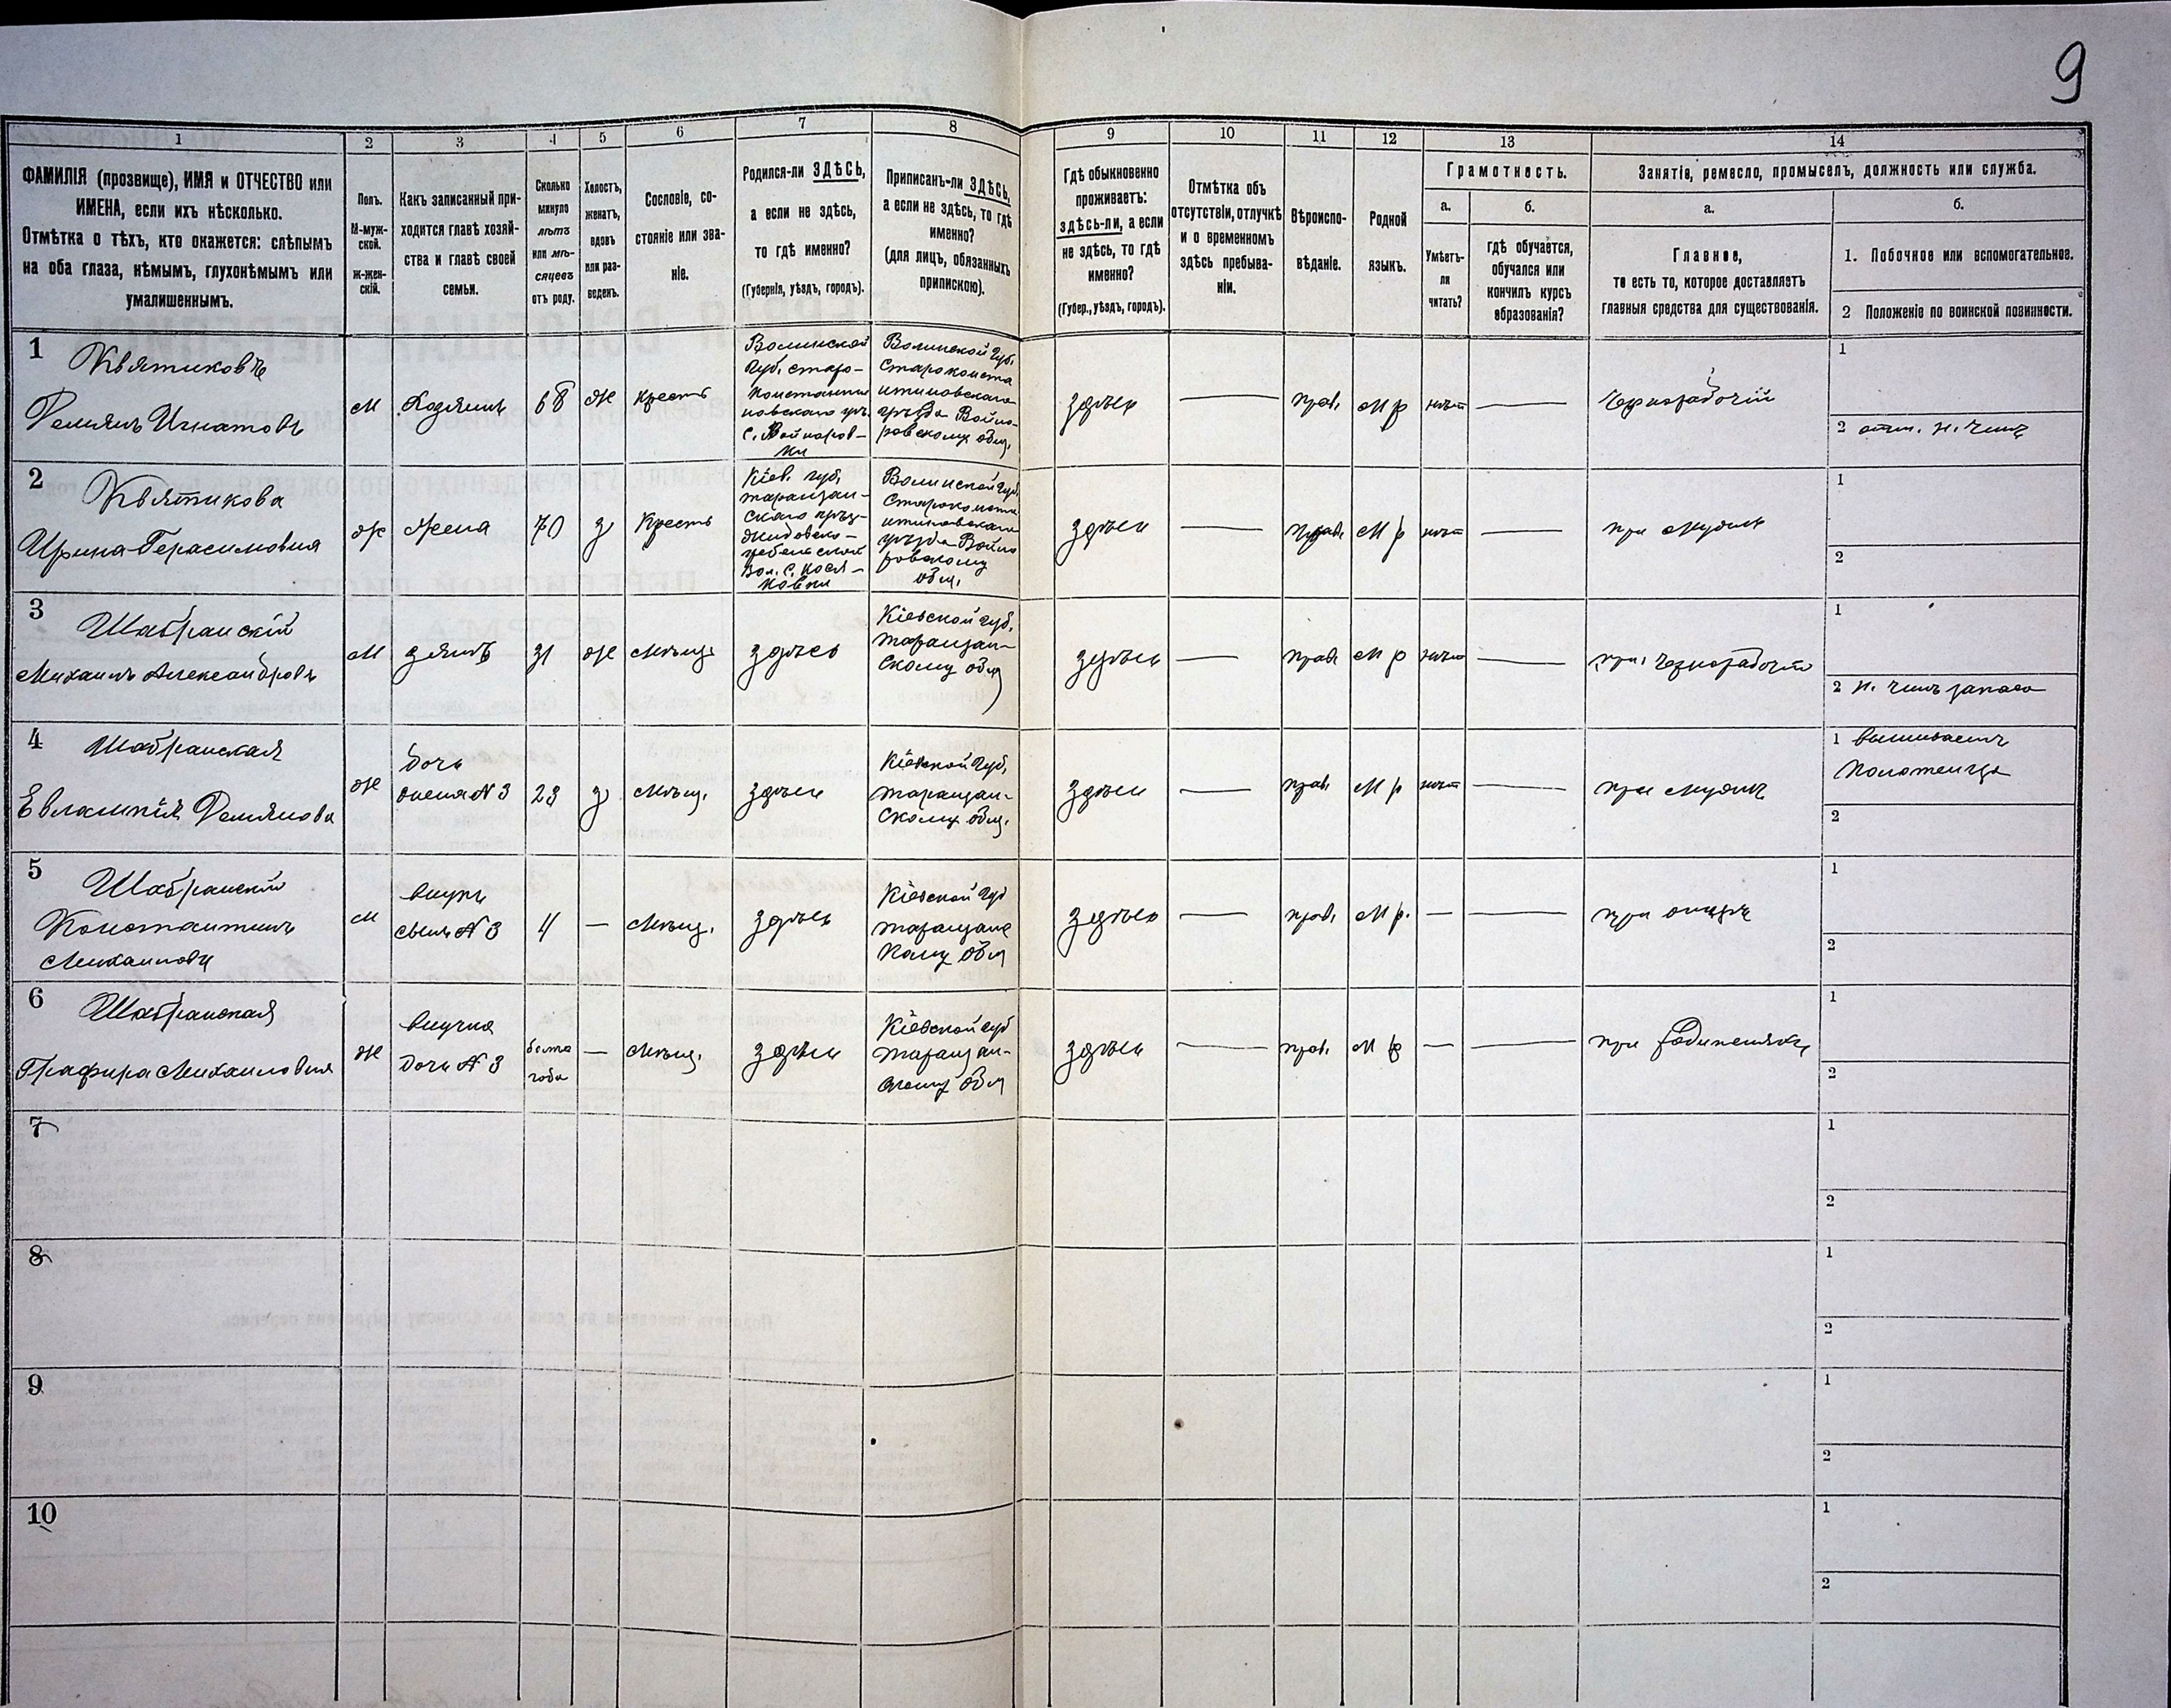 9
1
2
3
4
5
6
7
8
9
10
11
12
13
14
ФАМИЛІЯ (прозвище), ИМЯ и ОТЧЕСТВО или
ИМЕНА, если ихъ нѣсколько.
Отмѣтка о тѣхъ, кто окажется: слѣпымъ
на оба глаза, нѣмымъ, глухонѣмымъ или
умалишеннымъ.
Полъ.
М-муж-
ской.
Ж-жен-
скій.
Какъ записанный при-
ходится главѣ хозяй-
ства и главѣ своей
семьи.
Сколько
минуло
лѣтъ
или мѣ-
сяцевъ
отъ роду.
Холостъ,
женатъ,
вдовъ
или раз-
веденъ.
Сословіе, со-
стояніе или зва-
ніе.
Родился-ли ЗДѢСЬ,
а если не здѣсь,
то гдѣ именно?
(Губернія, уѣздъ, городъ).
Приписанъ-ли ЗДѢСЬ,
а если не здѣсь, то гдѣ
именно?
(для лицъ, обязанныхъ
припискою).
Гдѣ обыкновенно
проживаетъ:
здѣсь-ли, а если
не здѣсь, то гдѣ
именно?
(Губер., уѣздъ, городъ).
Отмѣтка объ
отсутствіи, отлучкѣ
и о временномъ
здѣсь пребыва-
ніи.
Вѣроиспо-
вѣданіе.
Родной
языкъ.
Грамотность.
а.
Умѣетъ-
ли
читать?
б.
гдѣ обучается,
обучался или
кончилъ курсъ
образованія?
Занятіе, ремесло, промыселъ, должность или служба.
а.
Главное,
то есть то, которое доставляетъ
главныя средства для существованія.
б.
1. Побочное или вспомогательное.
2 Положеніе по воинской повинности.
1 Квятиковъ
Демянъ Игнатовъ
М
Хозяинъ
68
Ж
крест
Волинской
Губ. старо-
константи
новскаго уѣз.
с. Войнаров-
ки
Волинской Губ.
Староконста
нтиновскаго
уѣзда Война-
ровскому общ.
здѣсь
прав.
М р
нѣт
Чернорабочій
1
2 отст. н. чинъ
2 Квятикова
Ирина Герасимовна
Ж
Жена
70
з
Крест
Кіев. губ.
таращан-
скаго уѣз-
жидовско-
гребельской
Вол. с. Кося-
ковки
Волинской Губ.
Староконста
нтиновскаго
уѣзда Война
ровскому
общ.
здѣсь
прав.
М р
нѣт
при мужѣ
1
2
3 Шабранскій
Михаилъ Александровъ
М
зять
31
Ж
Мѣщ.
здѣсь
Кіевской губ.
таращан-
скому общ
здѣсь
прав.
М р
нѣт
при чернорабочт
1
2 н. чинъ запаса
4 Шабранская
Евлампія Демянова
Ж
Дочь
Жена № 3
23
з
Мѣщ.
здѣсь
Кіевской Губ.
таращан-
скому общ.
здѣсь
прав.
М р
нѣт
при мужѣ
1 вышиваетъ
полотенца
2
5 Шабранскій
Константинъ
Михаиловъ
М
внукъ
сынъ № 3
4
—
Мѣщ.
здѣсь
Кіевской Губ
таращанс
кому общ
здѣсь
прав.
М р.
—
при отцѣ
1
2
6 Шабранская
Графира Михаиловна
Ж
внучка
Дочь № 3
года
—
Мѣщ.
здѣсь
Кіевской губ
таращан-
скому общ
здѣсь
прав.
М р
—
при родителяхъ
1
2
7
1
2
8
1
2
9
1
2
10
1
2